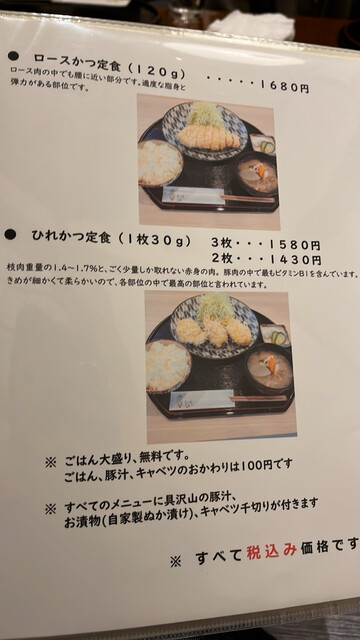 ● ロースかつ定食（120g） ・・・・・1680円
ロース肉の中でも腰に近い部分です。適度な脂身と
弾力がある部位です。
● ひれかつ定食（1枚30g） 3枚・・・1580円
2枚・・・1430円
枝肉重量の1.4～1.7%と、ごく少量しか取れない赤身の肉。豚肉の中で最もビタミンB1を含んでいます。
きめが細かくて柔らかいので、各部位の中で最高の部位と言われています。
※ ごはん大盛り、無料です。
ごはん、豚汁、キャベツのおかわりは100円です
※ すべてのメニューに具沢山の豚汁、
お漬物(自家製ぬか漬け)、キャベツ千切りが付きます
※ すべて税込み価格です